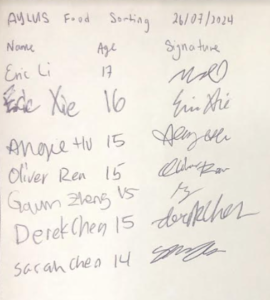 AYLUS Food Sorting 26/07/2024
Name Age Signature
Eric Li 17
Eric Xie 16 Eric Xie
Angue Hu 15
Oliver Ren 15
Gavin Zhang 15
Derek Chen 15 Derek Chen
Sarah Chen 14